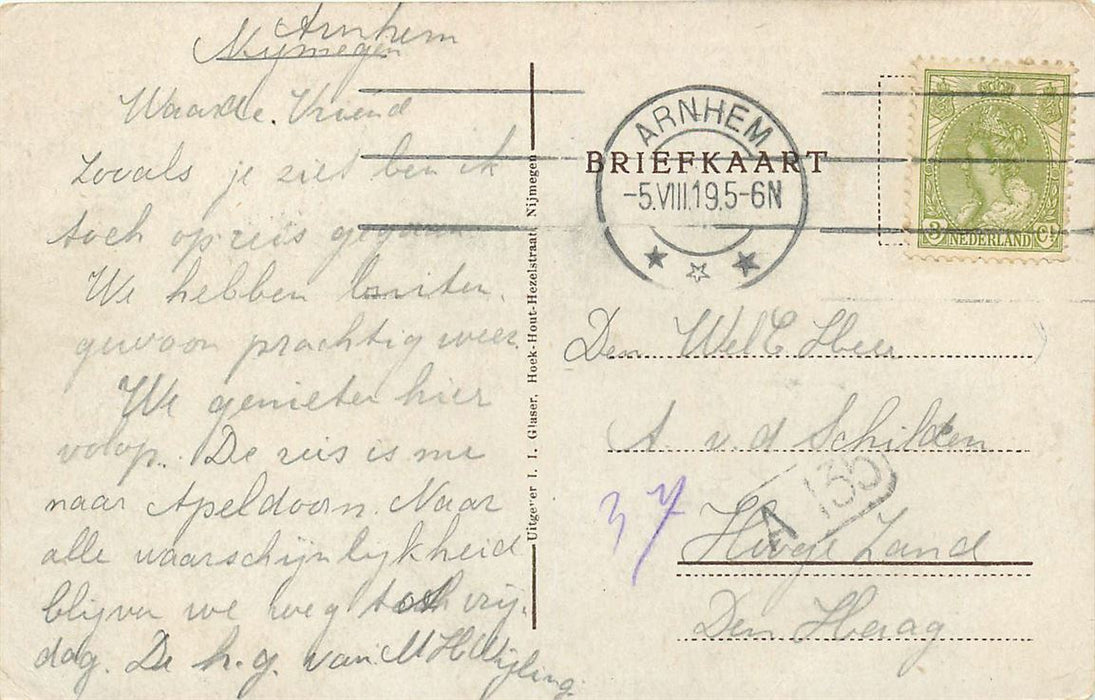 Arnhem
Nijmegen
Waarde Vriend
Zooals je ziet ben ik
toch op reis gegaan
We hebben buiten
gewoon prachtig weer.
We genieten hier
volop. De reis is nu
naar Apeldoorn. Naar
alle waarschijnlykheid
blijven we weg tot vrij-
dag. De h. g. van
Uitgever I. I. Glaser, Hoek-Hout-Hezelstraat, Nijmegen
BRIEFKAART
ARNHEM
-5.VIII.19.5-6N
3 NEDERLAND Ct
Den WelE Heer
A. v. d Schilden
37
A 135
Hooge Zand
Den Haag